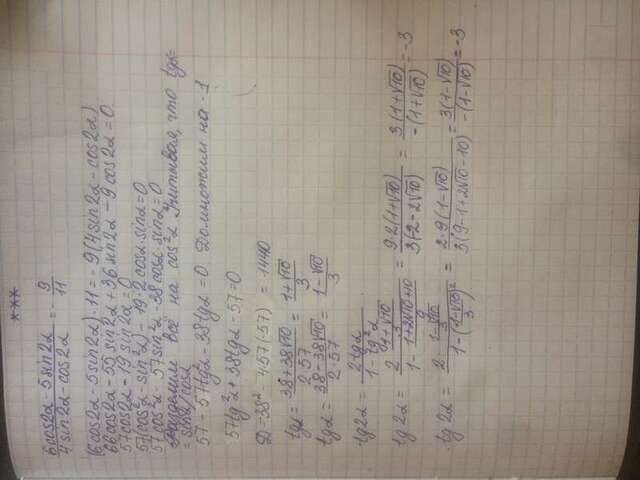 ***
6cos2α - 5sin2α / 4sin2α - cos2α = - 9/11
(6cos2α - 5sin2α)·11 = -9(4sin2α - cos2α)
66cos2α - 55sin2α + 36sin2α - 9cos2α = 0
57cos2α - 19sin2α = 0
57(cos²α - sin²α) - 19·2cosα·sinα = 0
57cos²α - 57sin²α - 38cosα·sinα = 0
Разделим всё на cos²α Учитывая, что tgα =
= sinα/cosα
57 - 57tg²α - 38tgα = 0 Домножим на -1
57tg²α + 38tgα - 57 = 0
D = 38² - 4·57·(-57) = 14440
tgα = 38+38√10 / 2·57 = 1+√10 / 3
tgα = 38-38√10 / 2·57 = 1-√10 / 3
tg2α = 2tgα / 1-tg²α
tg2α = 2·(1+√10)/3 / 1 - (1+2√10+10)/9 = 9·2(1+√10) / 3(2-2√10) = 3(1+√10) / -(1+√10) = -3
tg2α = 2·(1-√10)/3 / 1-(1-√10 / 3)² = 2·9(1-√10) / 3(9-1+2√10-10) = 3(1-√10) / -(1-√10) = -3